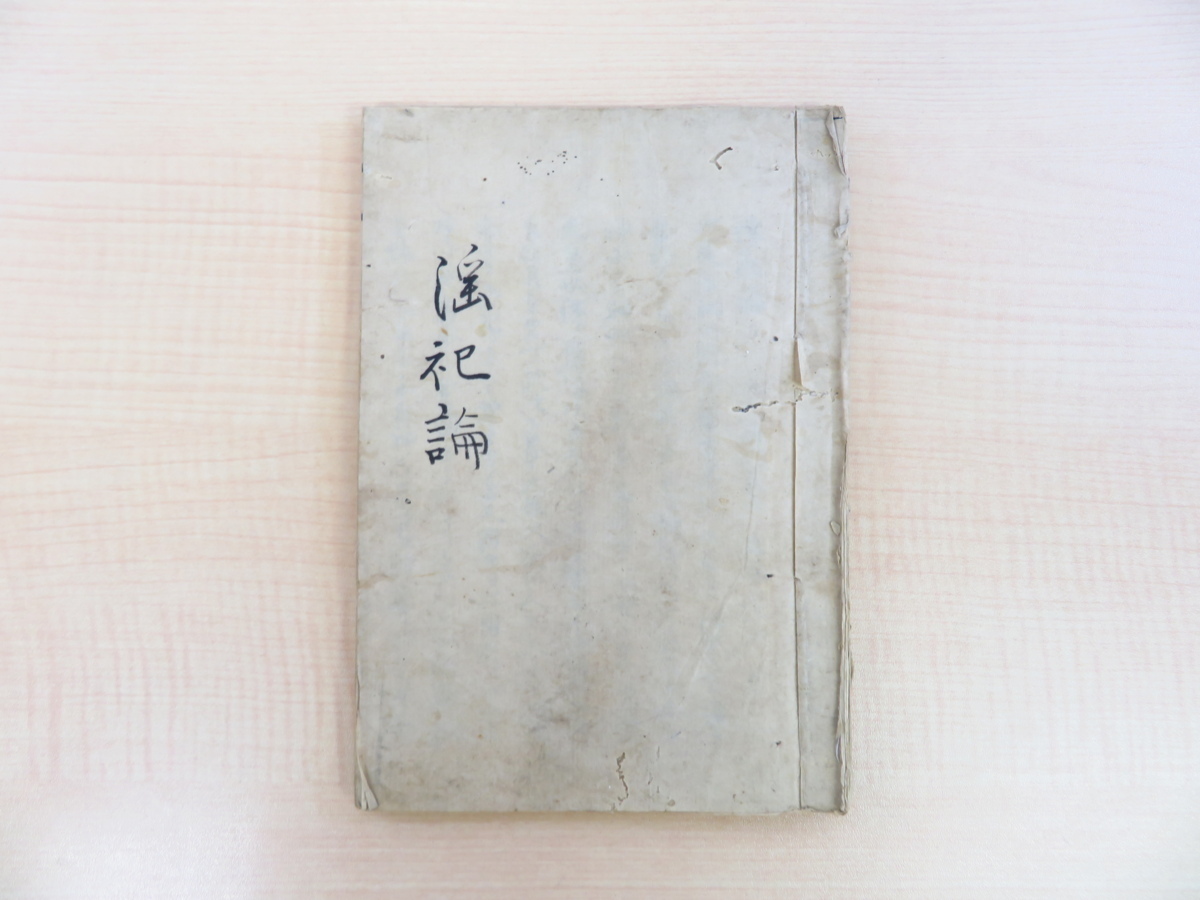 淫祀論